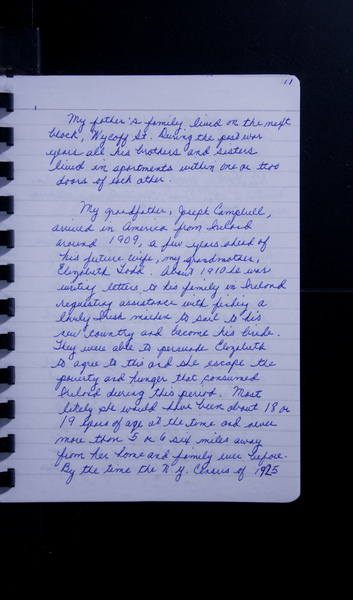 11
My father's family lived on the next
block, Wycoff St. During the post war
years all his brothers and sisters
lived in apartments within one or two
doors of each other.
My grandfather, Joseph Campbell,
arrived in America from Ireland
around 1909, a few years ahead of
his future wife, my grandmother,
Elizabeth. About 1910 he was
writing letters to his family in Ireland
requesting assistance with finding a
lovely Irish maiden to sail to his
new country and become his bride.
They were able to persuade Elizabeth
to agree to this and she escape the
poverty and hunger that consumed
Ireland during this period. Most
likely she would have been about 18 or
19 years of age at the time and never
more than 5 or 6 six miles away
from her home and family ever before.
By the time the N.Y. Census of 1925